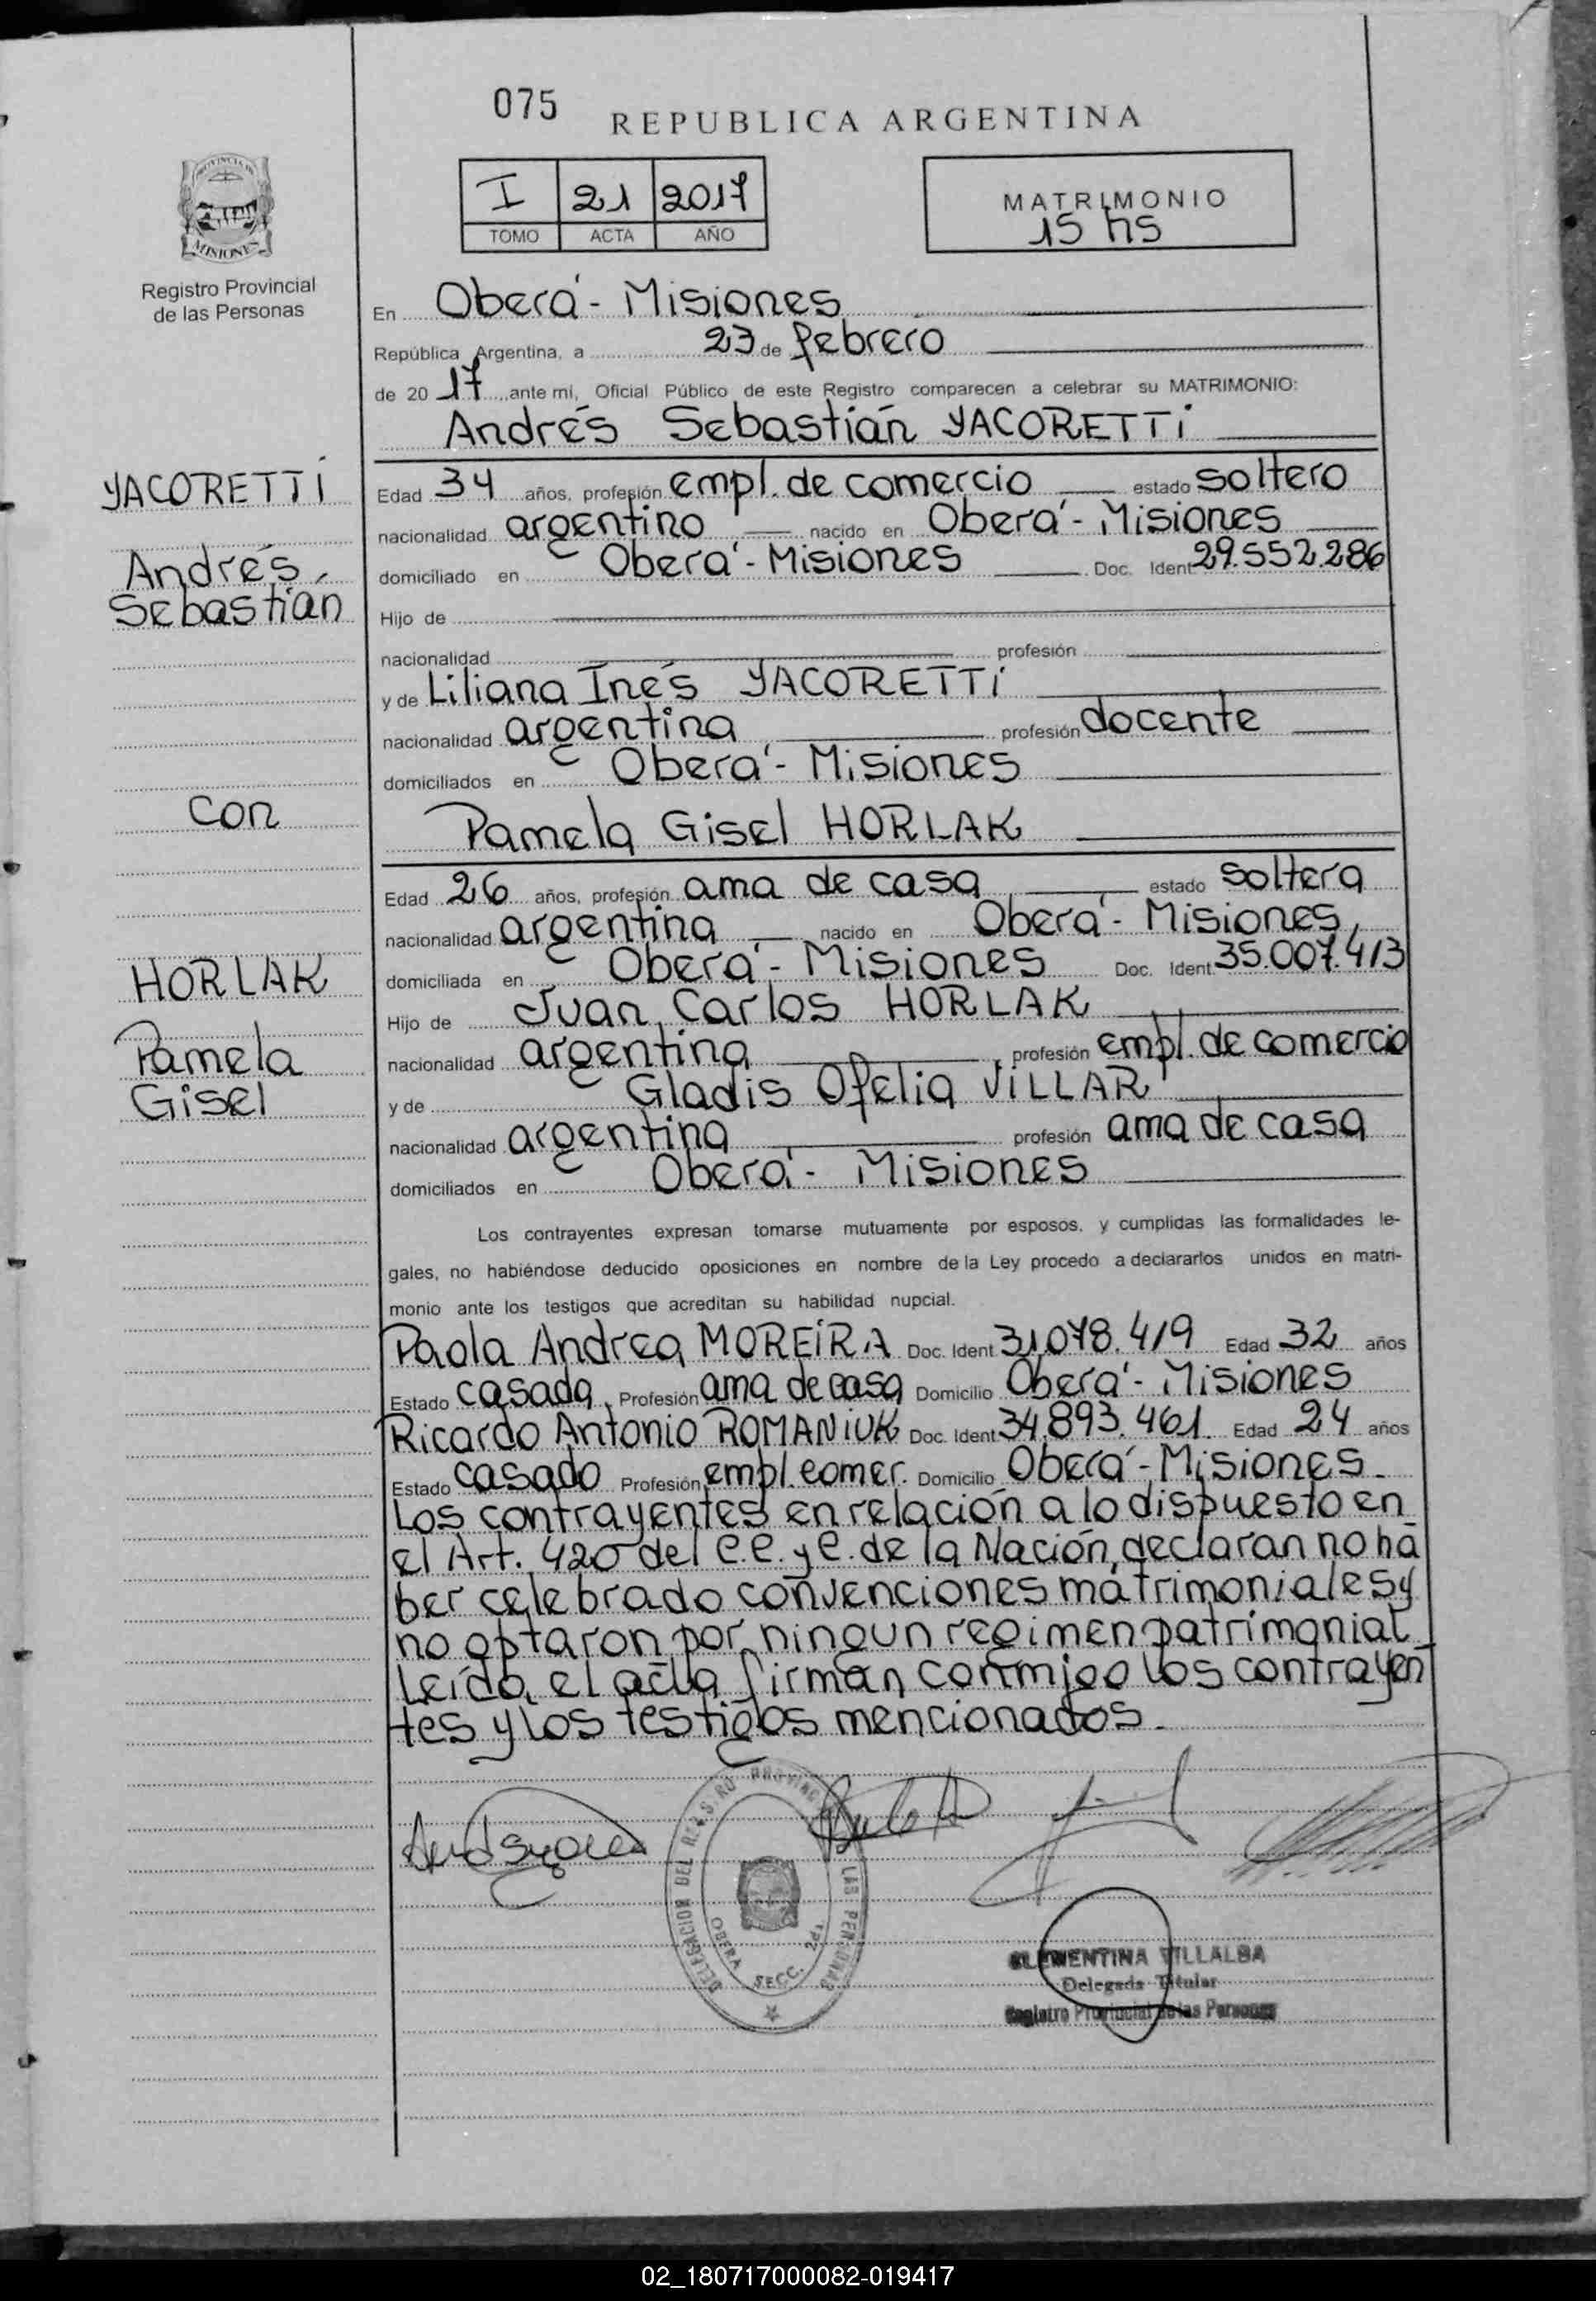 075
REPUBLICA ARGENTINA
I 21 2017
TOMO ACTA AÑO
MATRIMONIO
15 hs
PROVINCIA DE
MISIONES
Registro Provincial
de las Personas
En Oberá - Misiones
República Argentina, a 23 de febrero
de 20 17 ante mi, Oficial Público de este Registro comparecen a celebrar su MATRIMONIO:
Andrés Sebastián YACORETTi
YACORETTI
Edad 34 años, profesión empl. de comercio estado soltero
nacionalidad argentino nacido en Oberá - Misiones
Andrés
domiciliado en Oberá - Misiones Doc. Ident 29.552.286
Sebastián
Hijo de
nacionalidad profesión
y de Liliana Inés YACORETTi
nacionalidad argentina profesión docente
domiciliados en Oberá - Misiones
con
Pamela Gisel HORLAK
Edad 26 años, profesión ama de casa estado soltera
nacionalidad argentina nacido en Oberá - Misiones
HORLAK
domiciliada en Oberá - Misiones Doc. Ident. 35.007.413
Hijo de Juan Carlos HORLAK
Pamela
nacionalidad argentina profesión empl. de comercio
Gisel
y de Gladis Ofelia ViLLAR
nacionalidad argentina profesión ama de casa
domiciliados en Oberá - Misiones
Los contrayentes expresan tomarse mutuamente por esposos, y cumplidas las formalidades le-
gales, no habiéndose deducido oposiciones en nombre de la Ley procedo a declararlos unidos en matri-
monio ante los testigos que acreditan su habilidad nupcial.
Paola Andrea MOREiRA Doc. Ident 31.078.419 Edad 32 años
Estado casada Profesión ama de casa Domicilio Oberá - Misiones
Ricardo Antonio ROMANiUK Doc. Ident 34.893.461. Edad 24 años
Estado casado Profesión empl. comer. Domicilio Oberá - Misiones.
Los contrayentes en relación a lo dispuesto en
el Art. 420 del C.C. y C. de la Nación, declaran no ha
ber celebrado convenciones matrimoniales y
no optaron por ningun regimen patrimonial
Leída el acta firman conmigo los contrayen
tes y los testigos mencionados.
DELEGACION DEL REGISTRO PROVINCIAL DE LAS PERSONAS
OBERA SECC. 2da
CLEMENTINA VILLALBA
Delegada Titular
Registro Provincial de las Personas
02_180717000082-019417